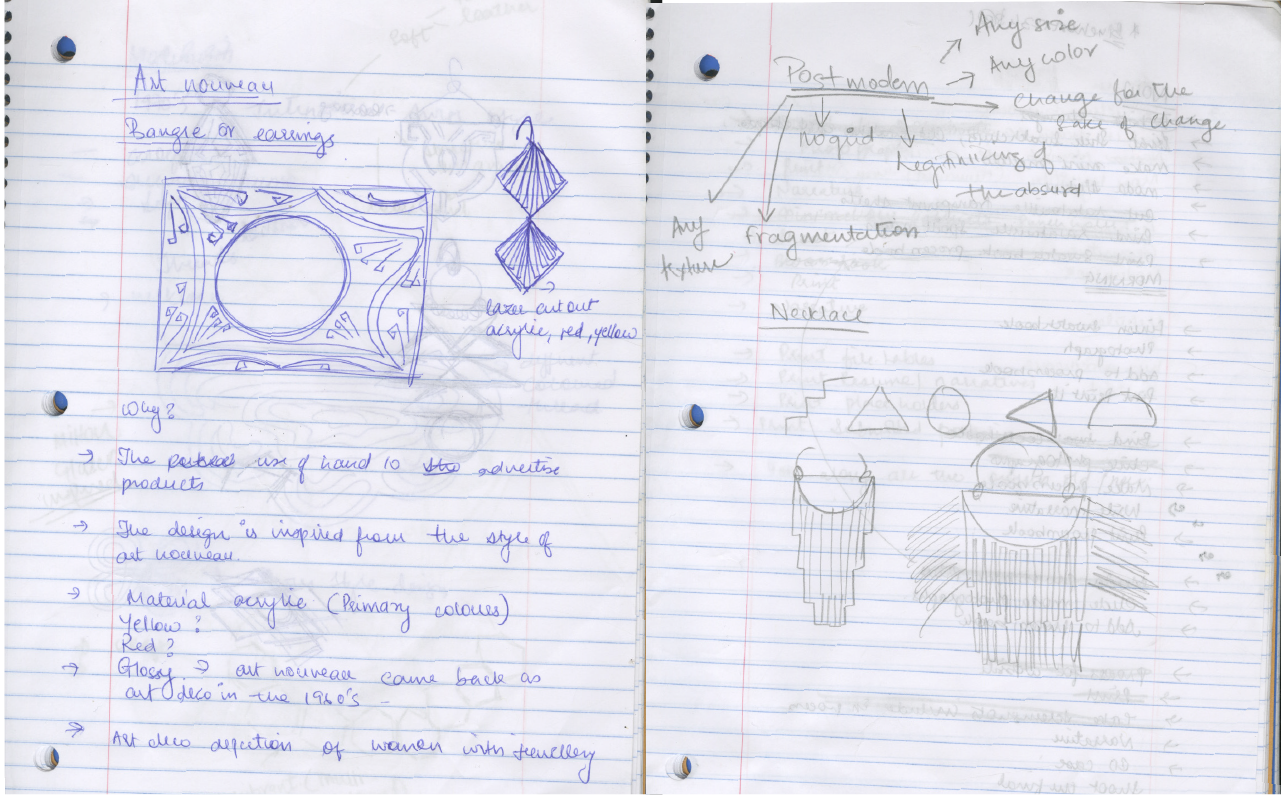 Art nouveau
Bangle or earrings
lazer cut out
acrylic, red, yellow
Why?
→ The use of hand to advertise
products
→ The design is inspired from the style of
art nouveau.
→ Material acrylic (Primary colours)
Yellow?
Red?
→ Glossy → art nouveau came back as
art deco in the 1960's –
→ Art deco depiction of women with jewellery
Post modern
Any size
Any color
Change for the
sake of change
No grid
Legitimizing of
the absurd
Any
texture
fragmentation
Necklace